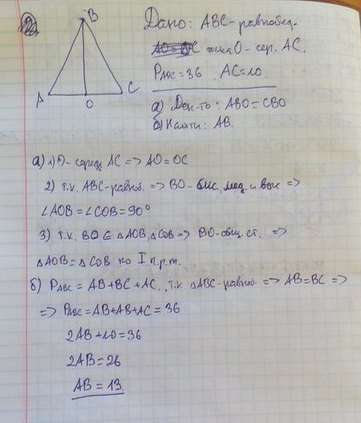 B
A
O
C
Дано: ABC-равнобед.
точка O - сер. AC.
P△ABC = 36 AC=10
а) Док-ть: ABO = CBO
б) Найти: AB.
а) 1) O - серед. AC => AO=OC
2) т.к. ABC-равноб. => BO - бис, мед. и выс =>
∠AOB=∠COB=90°
3) т.к. BO ∈ △AOB, △COB => BO-общ. ст. =>
△AOB=△COB по I п.р.т.
б) P△ABC = AB+BC+AC, т.к △ABC-равноб => AB=BC =>
=> P△ABC = AB+AB+AC = 36
2AB+10=36
2AB=26
AB=13